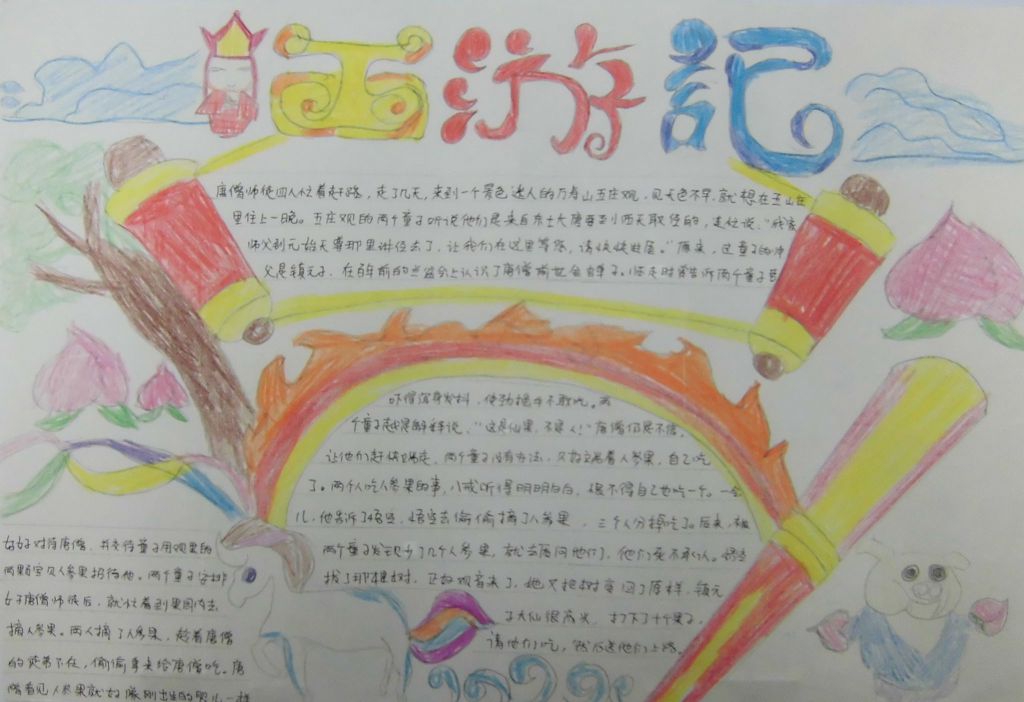 西游記
唐僧师徒四人忙着赶路，走了几天，来到一个景色迷人的万寿山五庄观，见天色不早，就想在五庄
里住上一晚。五庄观的两个童子听说他们是来自东土大唐要到西天取经的，连忙说，“我家
师父到元始天尊那里讲经去了，让我们在这里等您，请快快进屋。”原来，这童子的师
父是镇元子，在百年前的兰盆会上认识了唐僧前世金蝉子。临走时告诉两个童子要
好好对待唐僧，并交待童子用观里的
两颗宝贝人参果招待他。两个童子安排
好唐僧师徒后，就忙着到果园内去
摘人参果。两人摘了人参果，趁着唐僧
的徒弟不在，偷偷拿来给唐僧吃。唐
僧看见人参果就好像刚出生的婴儿一样
吓得浑身发抖，使劲摇手不敢吃。两
个童子越是解释说，“这是仙果，不是人！”唐僧仍是不信，
让他们赶快端走。两个童子没有办法，只好端着人参果，自己吃
了。两人吃人参果的事，八戒听得明明白白，恨不得自己也吃一个。一会
儿，他告诉了悟空，悟空去偷偷摘了人参果，三个人分掉吃了。后来，被
两个童子发现少了几个人参果，就去质问他们，他们死不承认。悟空
找了那棵树，正好观音来了，她又把树变回了原样，镇元
子大仙很高兴，打下了十个果子，
请他们吃，然后送他们上路。